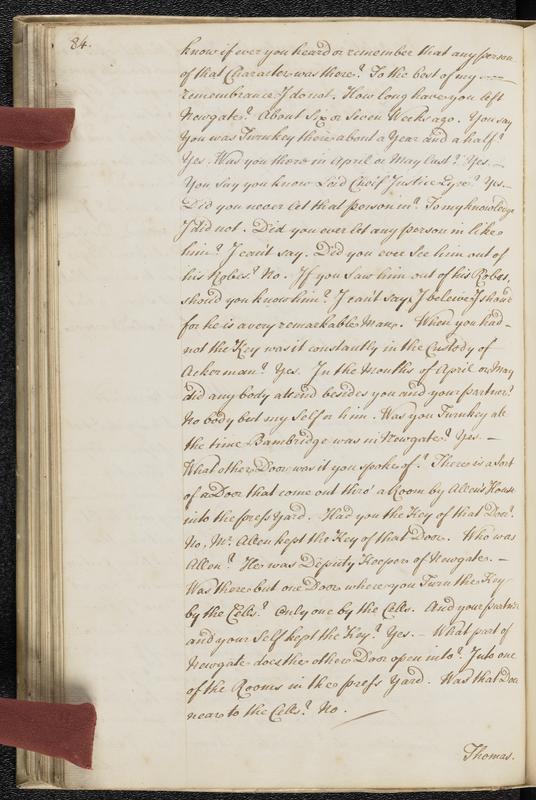 84.
know if ever you heard or remember that any person
of that Character was there? To the best of my
remembrance I do not. How long have you left
Newgate? About Six or Seven Weeks ago. You say
You was Turnkey there about a Year and a half?
Yes. Was you there in April or May last? Yes. —
You say you know Lord Cheif Justice Eyre? Yes. —
Did you never let that person in? To my knowledge
I did not. Did you ever let any person in like
him? I can't say. Did you ever see him out of
his Robes? No. If you saw him out of his Robes,
shou'd you know him? I can't say, I beleive I shou'd
for he is a very remarkable Man. When you had
not the Key was it constantly in the Custody of
Ackerman? Yes. In the Months of April or May
did any body attend besides you and your partner?
No body but my Self or him. Was you Turnkey all
the time Bambridge was in Newgate? Yes. —
What other Door was it you spoke of? There is a Sort
of a Door that come out thro' a Room by Allen's House
into the press Yard. Had you the Key of that Door?
No, Mr. Allen kept the Key of that Door. Who was
Allen? He was Deputy Keeper of Newgate. —
Was there but one Door where you Turn the Key
by the Cells? Only one by the Cells. And your partner
and your Self kept the Key? Yes. — What part of
Newgate does the other Door open into? Into one
of the Rooms in the press Yard. Was that Door
near to the Cells? No.
Thomas.